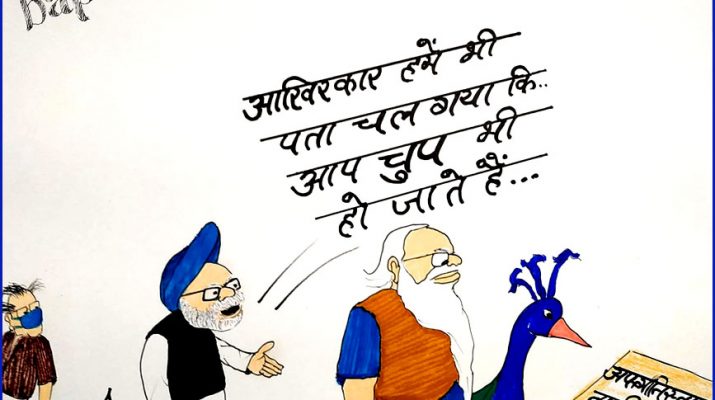 आखिरकार हमें भी
पता चल गया कि..
आप चुप भी
हो जाते हैं...